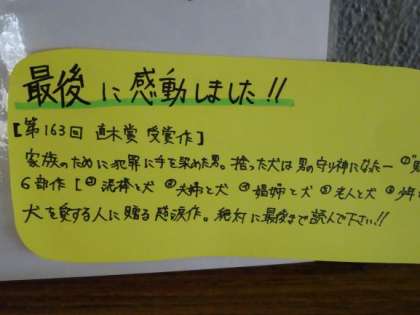 最後に感動しました!!
【第163回 直木賞 受賞作】
家族のために犯罪に手を染めた男。拾った犬は男の守り神になった― ①"男
6部作 [②泥棒と犬 ③夫婦と犬 ④娼婦と犬 ⑤老人と犬 ⑥少年
犬を愛する人に贈る感涙作。絶対に最後まで読んで下さい!!